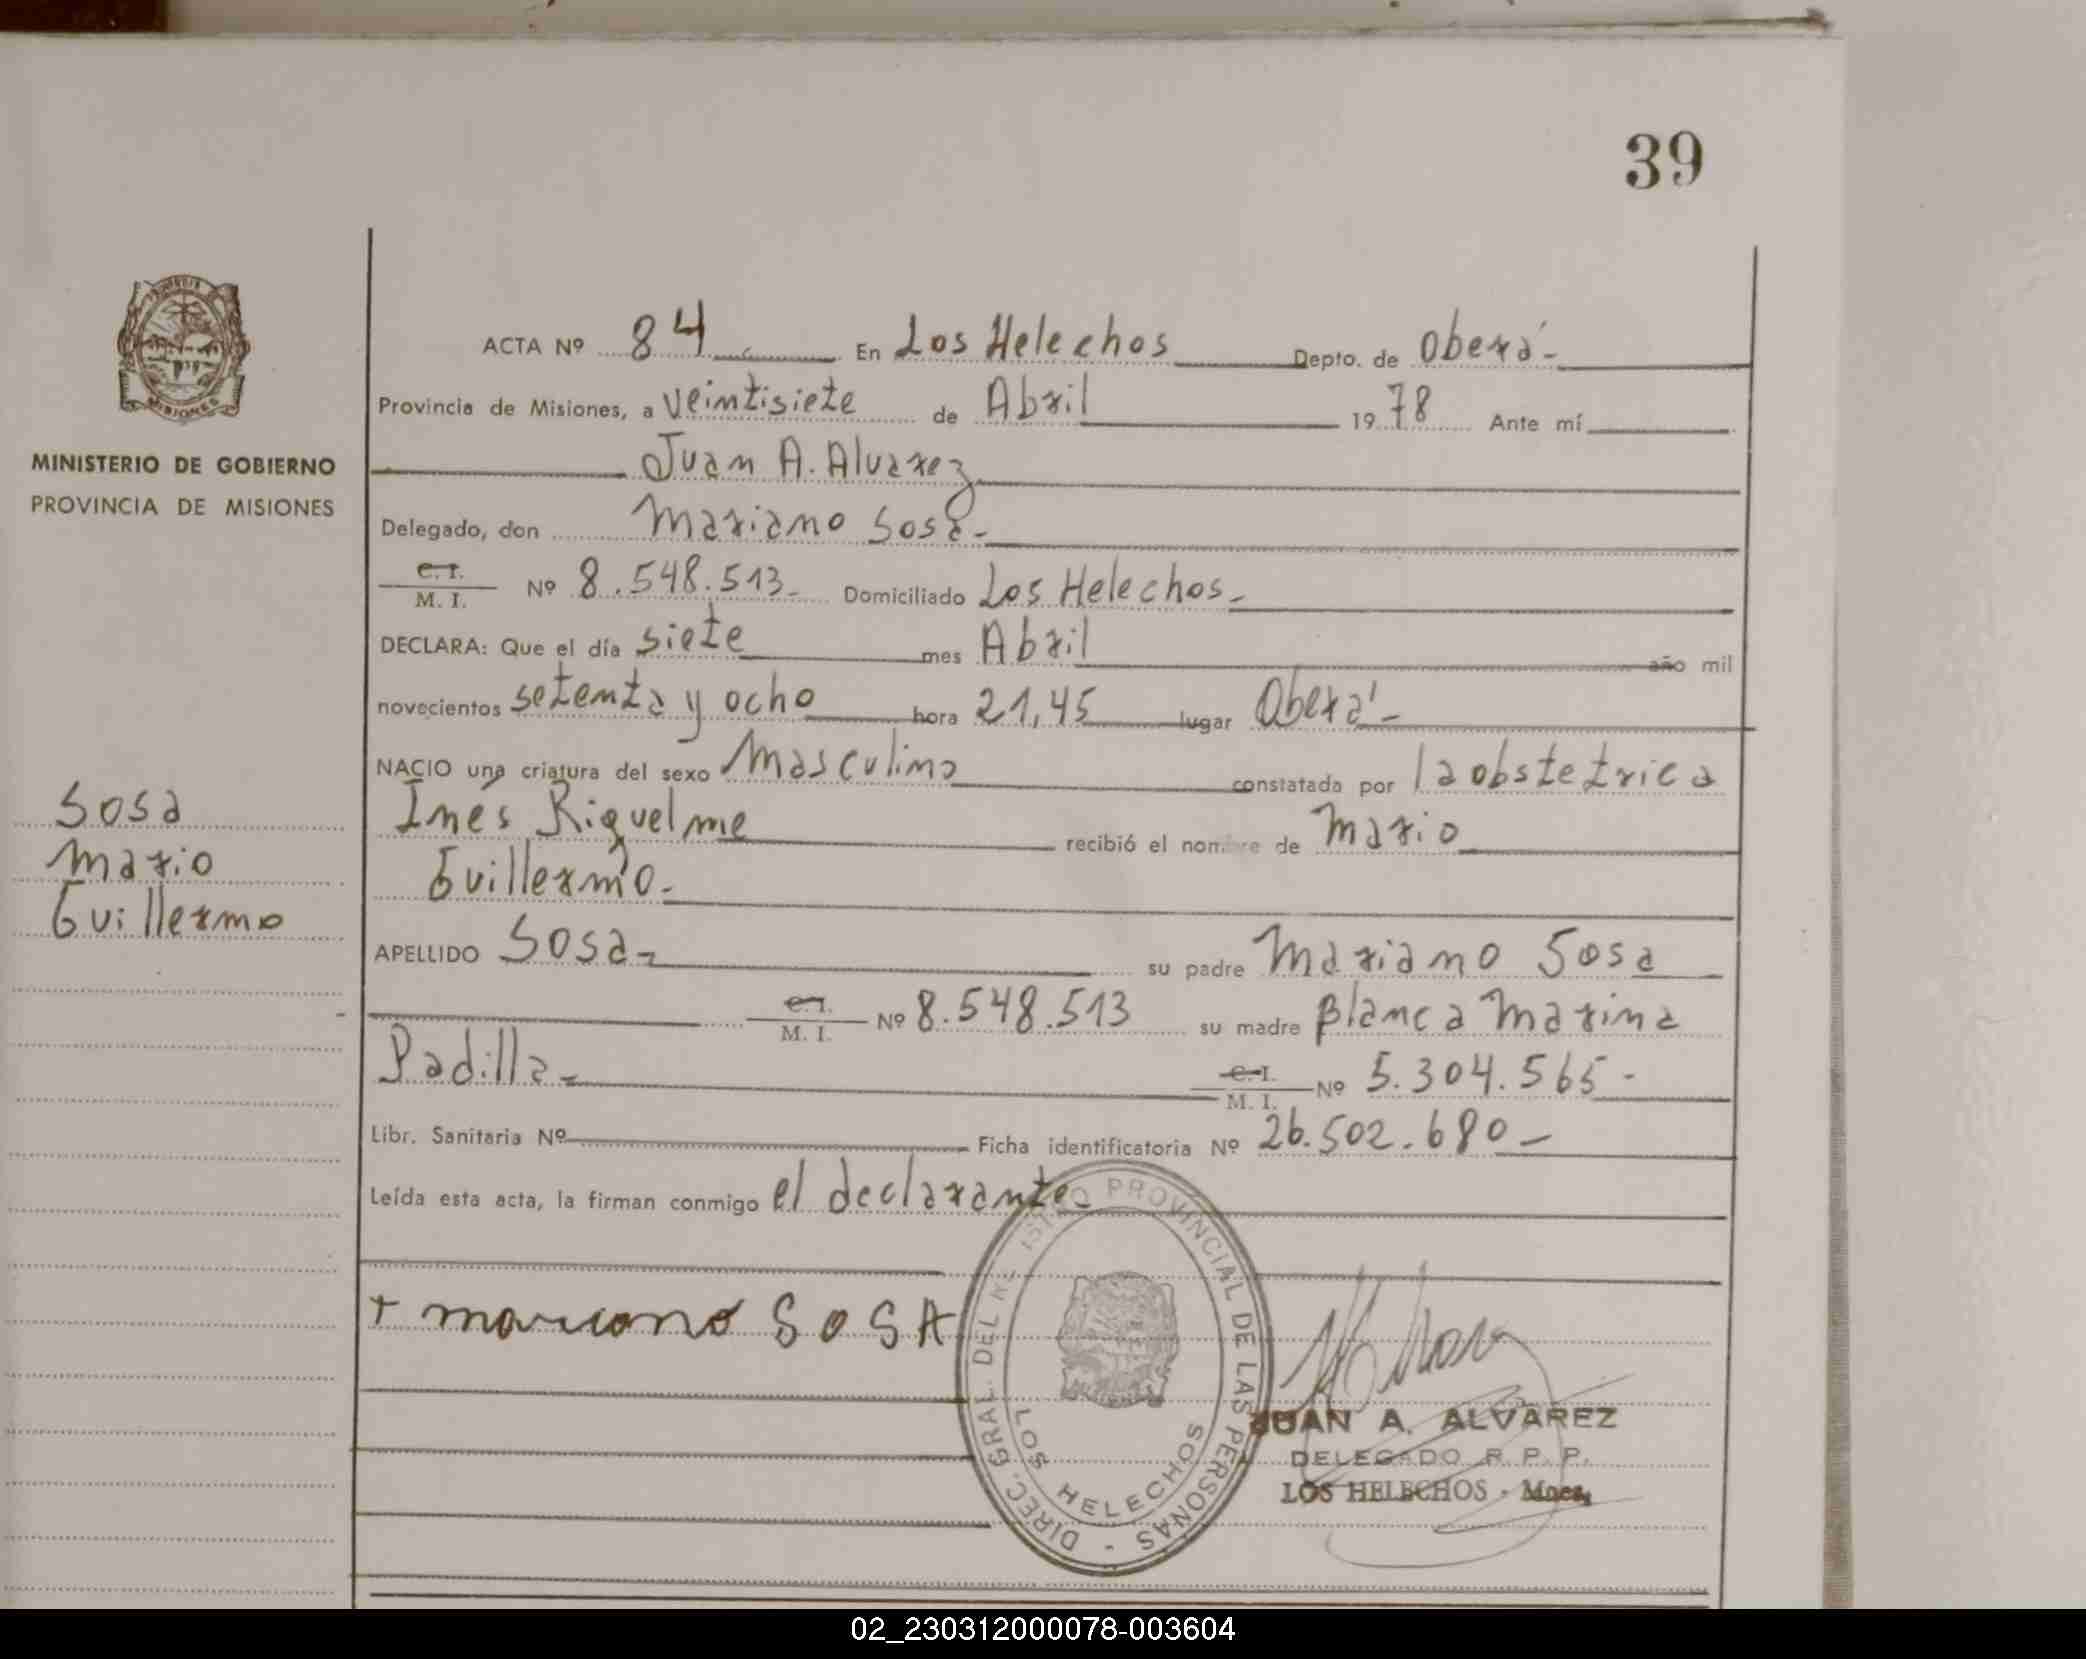 39
MISIONES
MINISTERIO DE GOBIERNO
PROVINCIA DE MISIONES
Sosa
Mario
Guillermo
ACTA Nº 84 En Los Helechos Depto. de Oberá-
Provincia de Misiones, a veintisiete de Abril 1978 Ante mí
Juan A. Alvarez
Delegado, don Mariano Sosa-
C. I.
M. I. Nº 8.548.513- Domiciliado Los Helechos-
DECLARA: Que el día siete mes Abril año mil
novecientos setenta y ocho hora 21,45 lugar Oberá-
NACIO una criatura del sexo Masculino constatada por la obstetrica
Inés Riquelme recibió el nombre de Mario
Guillermo-
APELLIDO Sosa- su padre Mariano Sosa
C. I.
M. I. Nº 8.548.513 su madre Blanca Marina
Padilla- C. I.
M. I. Nº 5.304.565-
Libr. Sanitaria Nº Ficha identificatoria Nº 26.502.680-
Leída esta acta, la firman conmigo el declarante-
+ mariano SOSA
DIREC. GRAL. DEL PROVINCIAL DE LAS PERSONAS -
LOS HELECHOS
JUAN A. ALVAREZ
DELEGADO R. P. P.
LOS HELECHOS - Mnes.
02_230312000078-003604